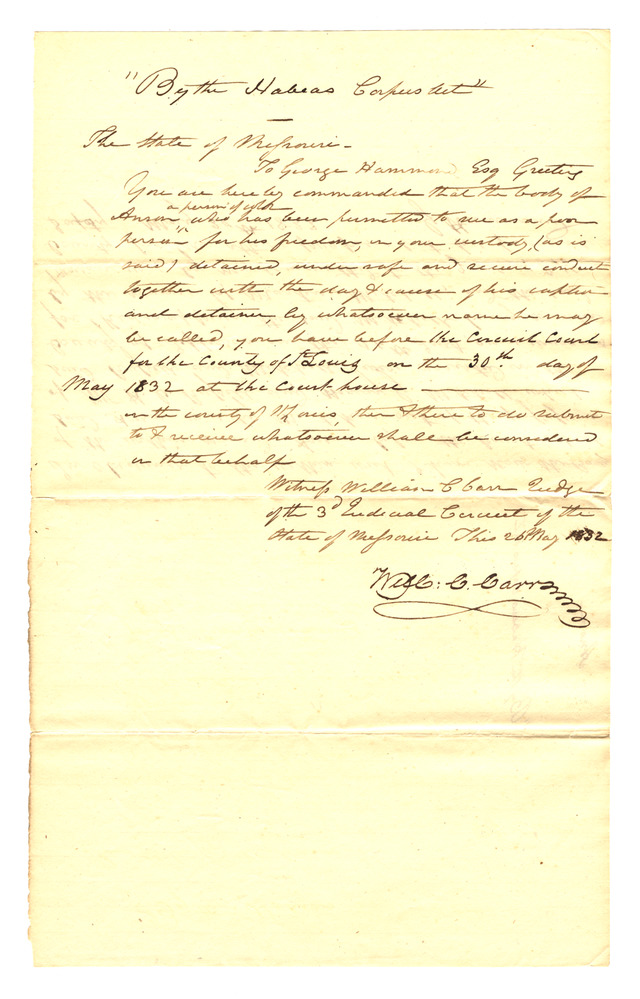 "By the Habeas Corpus Act"
The State of Missouri -
To George Hammond Esq Greeting
You are hereby commanded that the body of
a person of color
Anson who has been permitted to sue as a poor
person for his freedom, in your custody, (as is
said) detained, under safe and secure conduct
together with the day & cause of his caption
and detainer, by whatsoever name he may
be called, you have before the Circuit Court
for the County of St Louis on the 30th. day of
May 1832 at the Court house
in the county of St Louis, then & there to do submit
to & receive whatsoever shall be considered
in that behalf
Witness William C Carr Judge
of the 3d Judicial Circuit of the
State of Missouri This 26 May 1832
Will: C. Carr